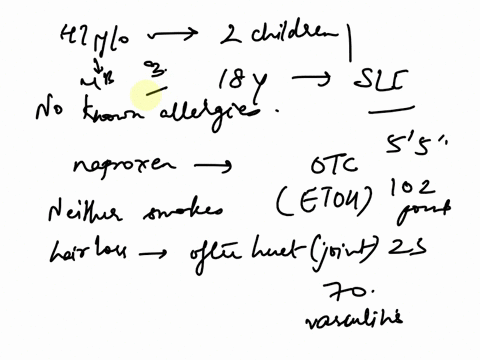 42 y/o → 2 children
18 y → SLE
No known allergies.
5'5"
naproxen → OTC
(ETOH) 102
Neither smokes
hair loss → often hurt (joint) 25
70.
vasculitis